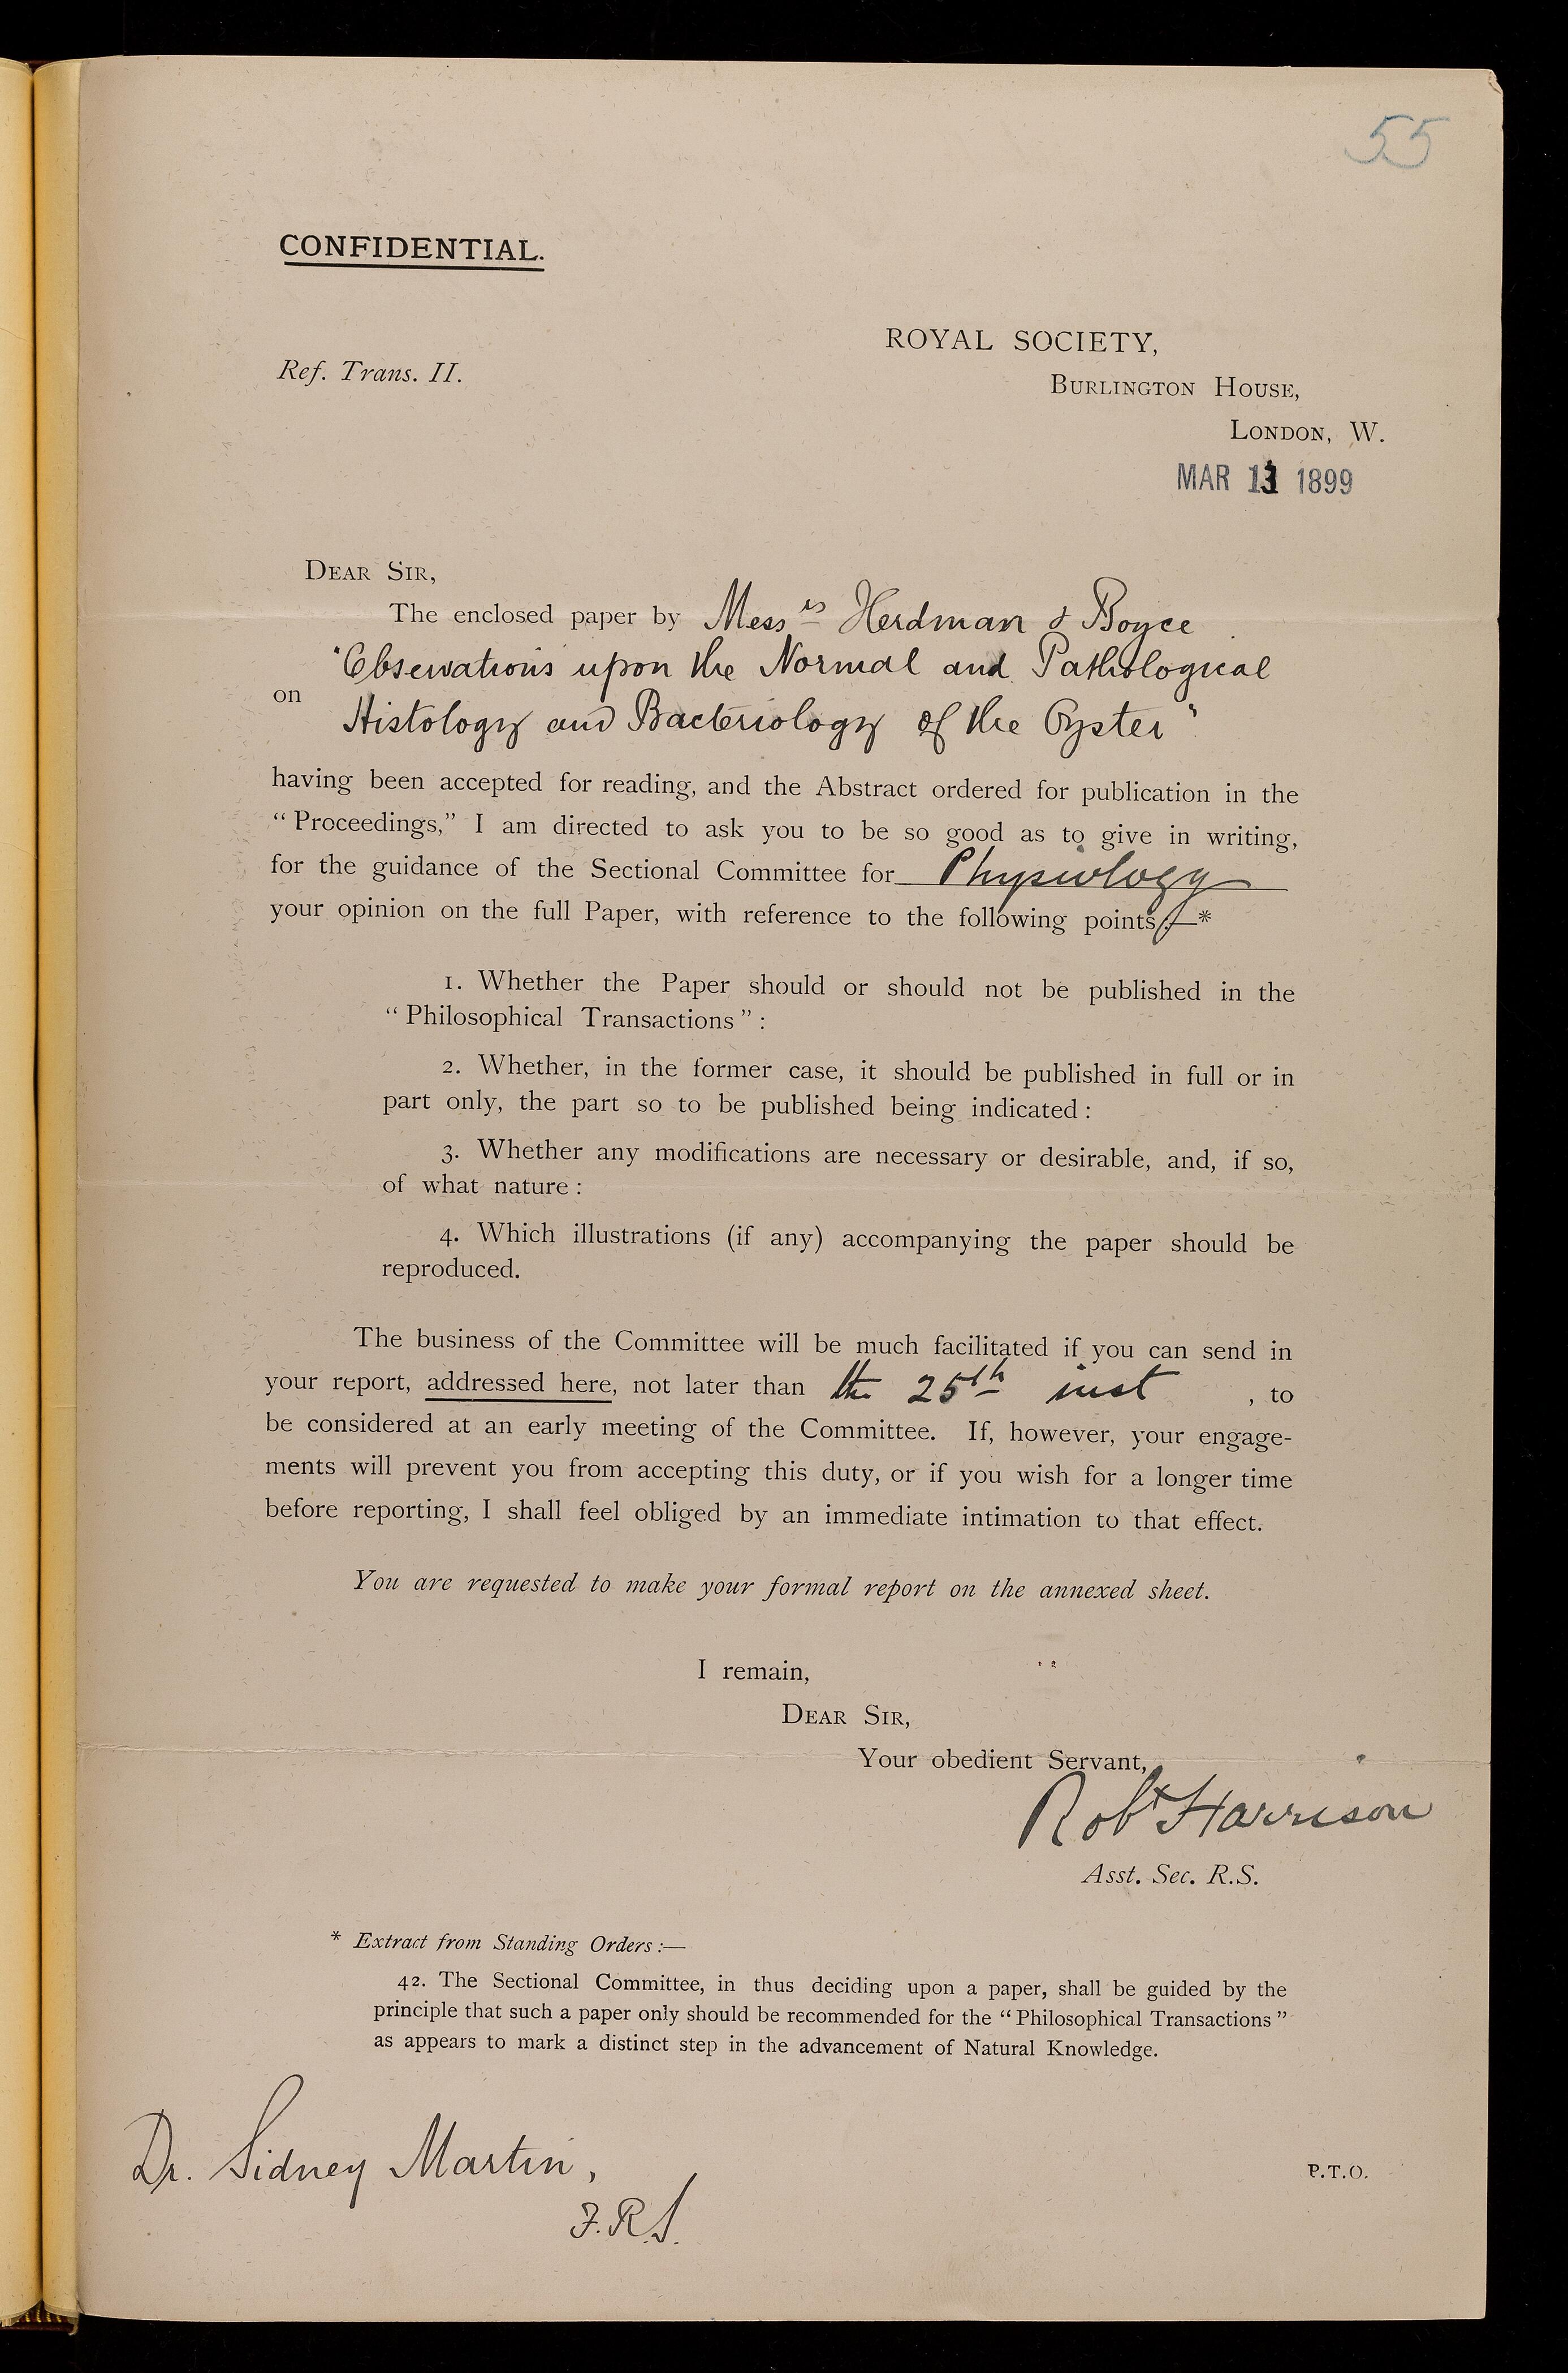 55
CONFIDENTIAL.
ROYAL SOCIETY,
Ref. Trans. II.
BURLINGTON HOUSE,
LONDON, W.
MAR 13 1899
DEAR SIR,
The enclosed paper by Messrs Herdman & Boyce
"Observations upon the Normal and Pathological
on
Histology and Bacteriology of the Oyster"
having been accepted for reading, and the Abstract ordered for publication in the
“Proceedings,” I am directed to ask you to be so good as to give in writing,
for the guidance of the Sectional Committee for Physiology
your opinion on the full Paper, with reference to the following points:—*
1. Whether the Paper should or should not be published in the
“Philosophical Transactions”:
2. Whether, in the former case, it should be published in full or in
part only, the part so to be published being indicated:
3. Whether any modifications are necessary or desirable, and, if so,
of what nature:
4. Which illustrations (if any) accompanying the paper should be
reproduced.
The business of the Committee will be much facilitated if you can send in
your report, addressed here, not later than the 25th inst , to
be considered at an early meeting of the Committee. If, however, your engage-
ments will prevent you from accepting this duty, or if you wish for a longer time
before reporting, I shall feel obliged by an immediate intimation to that effect.
You are requested to make your formal report on the annexed sheet.
I remain,
DEAR SIR,
Your obedient Servant,
Robt Harrison
Asst. Sec. R.S.
* Extract from Standing Orders:—
42. The Sectional Committee, in thus deciding upon a paper, shall be guided by the
principle that such a paper only should be recommended for the “Philosophical Transactions”
as appears to mark a distinct step in the advancement of Natural Knowledge.
Dr. Sidney Martin,
P.T.O.
F.R.S.